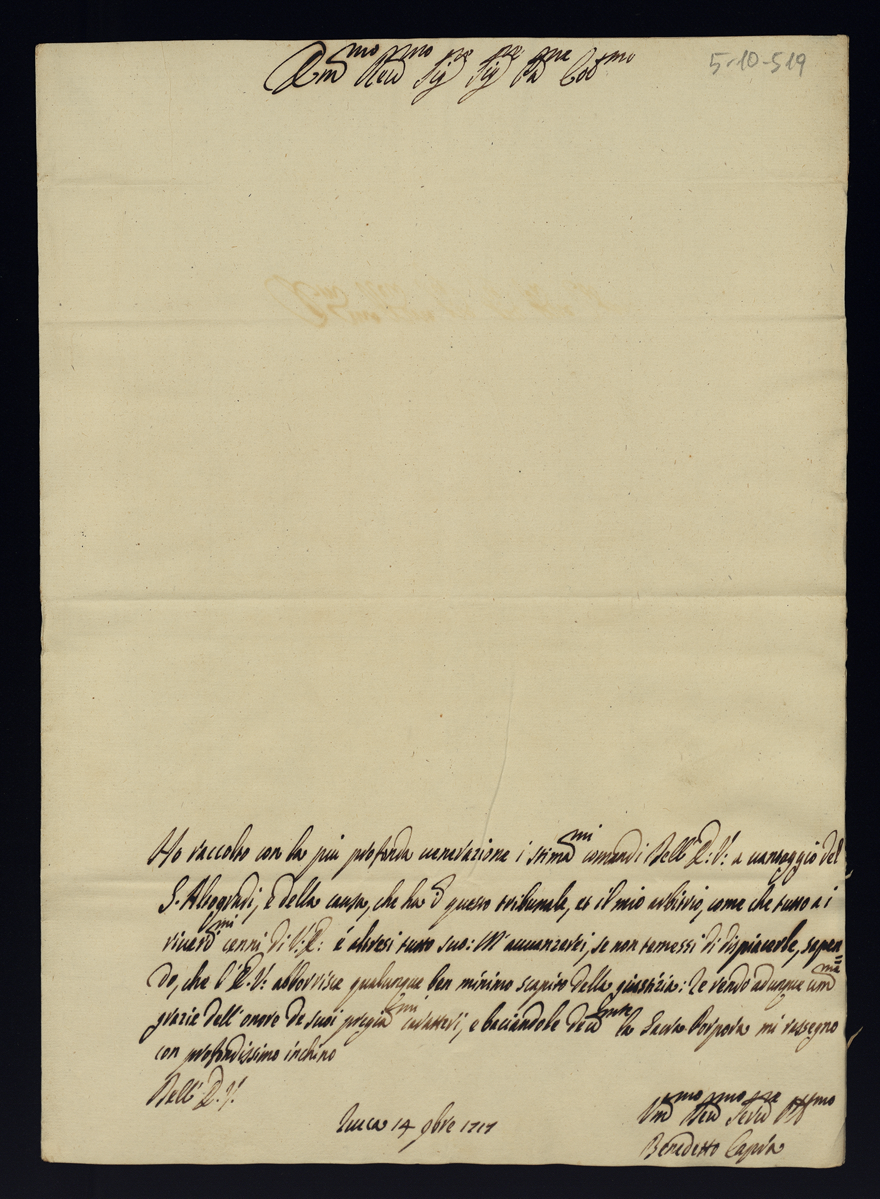 Em^mo Reu^mo Sig^re Sig^re Pa^ne Col^mo
5-10-519
Ho raccolto con la piu profonda uenerazione i stima^mi comandi Dell' E: V: a uantaggio del
S. Altogradi, e della causa, che ha questo tribunale, et il mio arbitrio, come che tutto a i
riuerd^mi cenni di V: E: é altresi tutto suo: M' auuanzarei, se non temessi di dispiacerle, sapen=
do, che l' E. V: abborrisce qualunque ben minimo scapito della giustizia: Le rendo adunque um^me
grazie dell' onore de suoi pregia^mi caratteri, e baciandole la Sacra Porpora mi rassegno
con profondissimo inchino
Dell' E. V:
Lucca 14 9bre 1717
Um^mo Deu^mo Seru^re Obb^mo
Benedetto